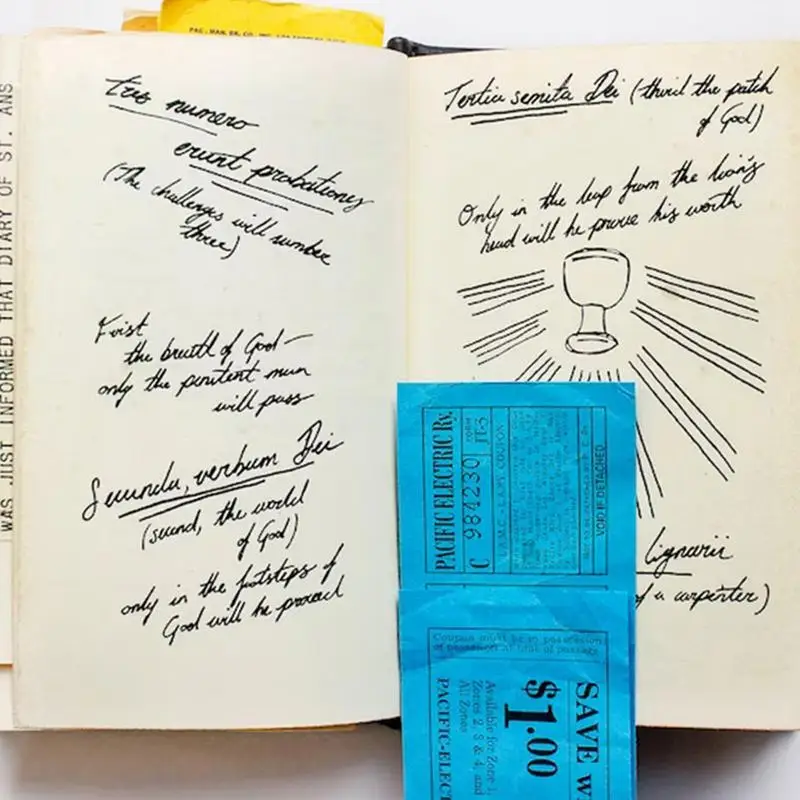 WAS JUST INFORMED THAT DIARY OF ST. ANS
tres numero
erunt probationes
(The challenges will number
three)
First
the breath of God—
only the penitent man
will pass
Secunda, verbum Dei
(second, the world
of God)
only in the footsteps of
God will he proceed
Tertia semita Dei (third the patch
of God)
Only in the leap from the lion's
head will he prove his worth
lignarii
of a carpenter)
PACIFIC ELECTRIC Ry.
C 984230
FORM
JT-5
L.A.M.C.-L.A.RY COUPON
VOID IF DETACHED
Coupon must be in possession
of passenger at time of passage
SAVE W
$1.00
Available for Zone 1,
Zones 2, 3 & 4, and
All Zones
PACIFIC-ELECT